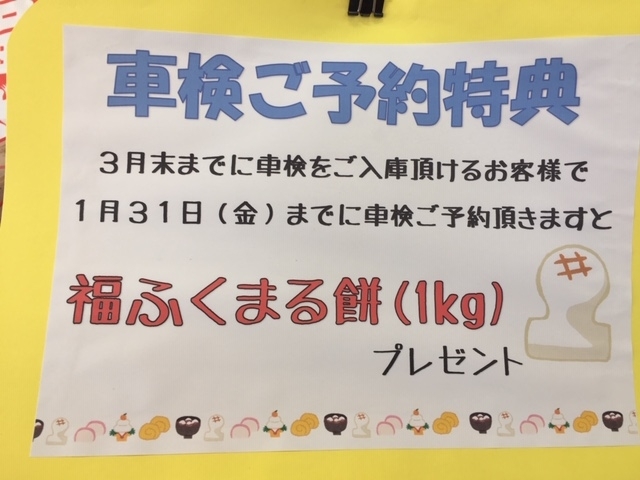 車検ご予約特典
3月末までに車検をご入庫頂けるお客様で
1月31日(金)までに車検ご予約頂きますと
福ふくまる餅(1kg)
プレゼント